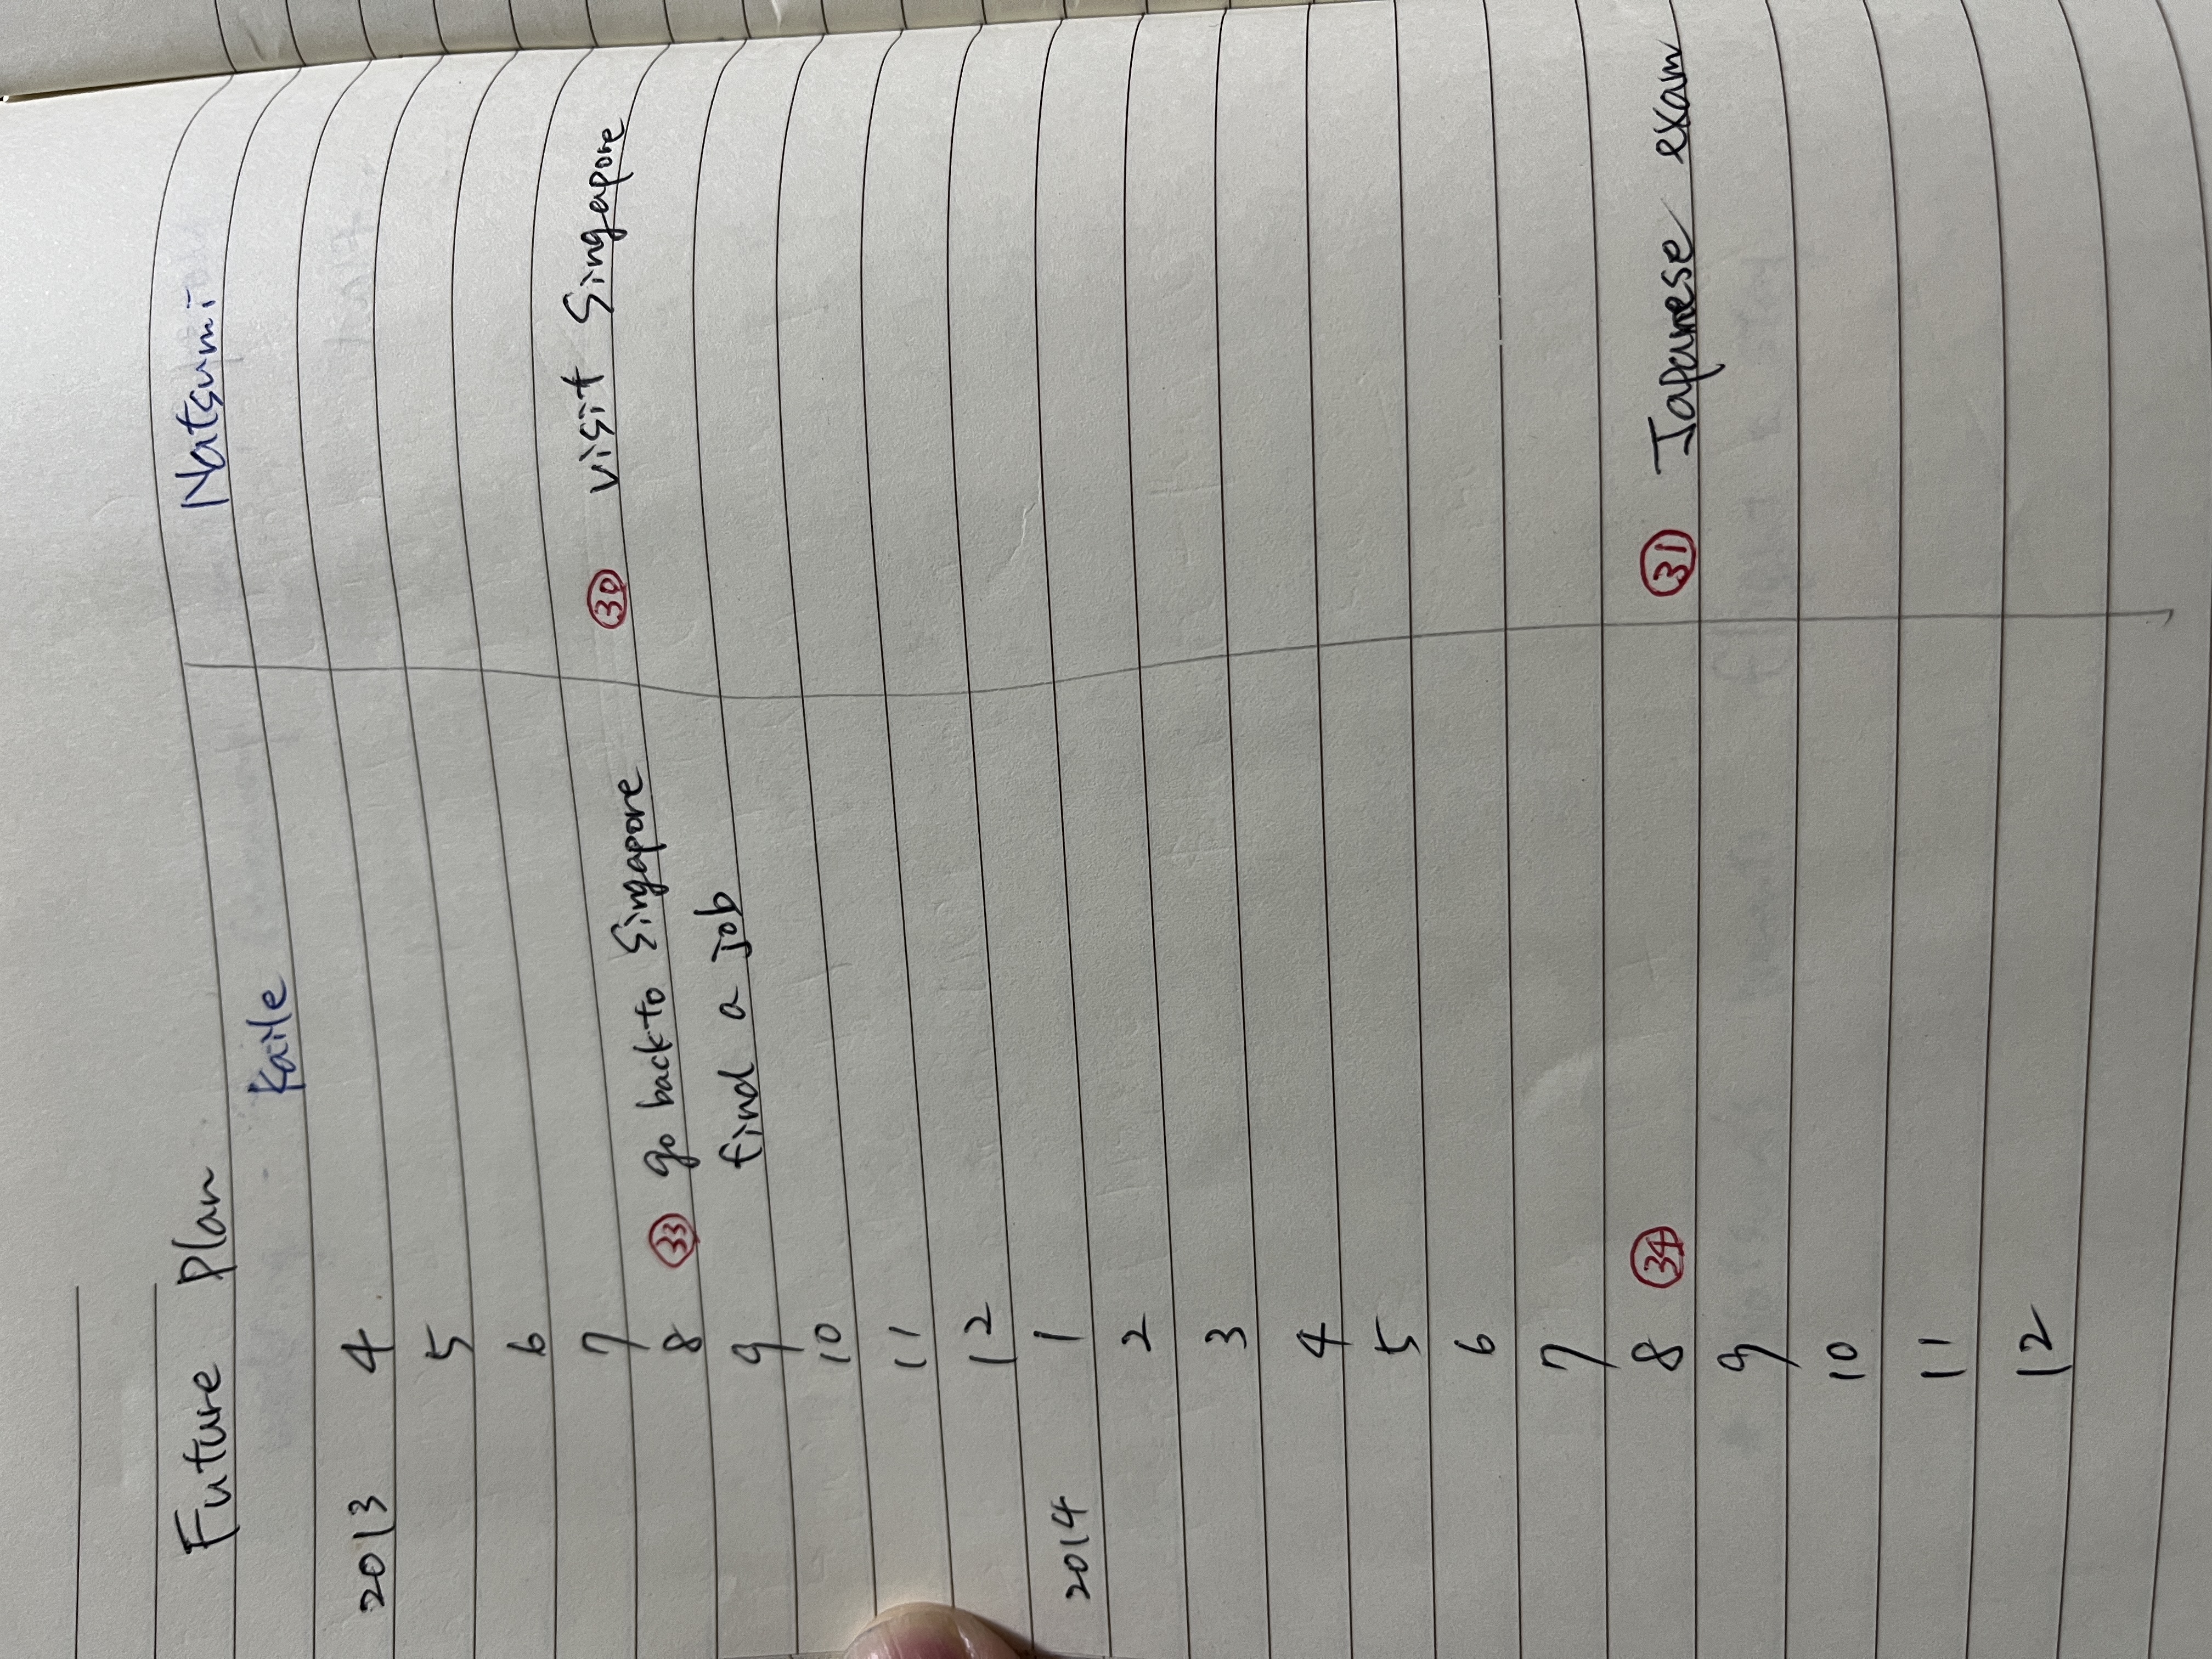 Future Plan
Kaile Natsumi
2013 4
5
6
7 30 visit Singapore
8 33 go back to Singapore
9 find a job
10
11
12
2014 1
2
3
4
5
6
7
8 34 31 Japanese exam
9
10
11
12